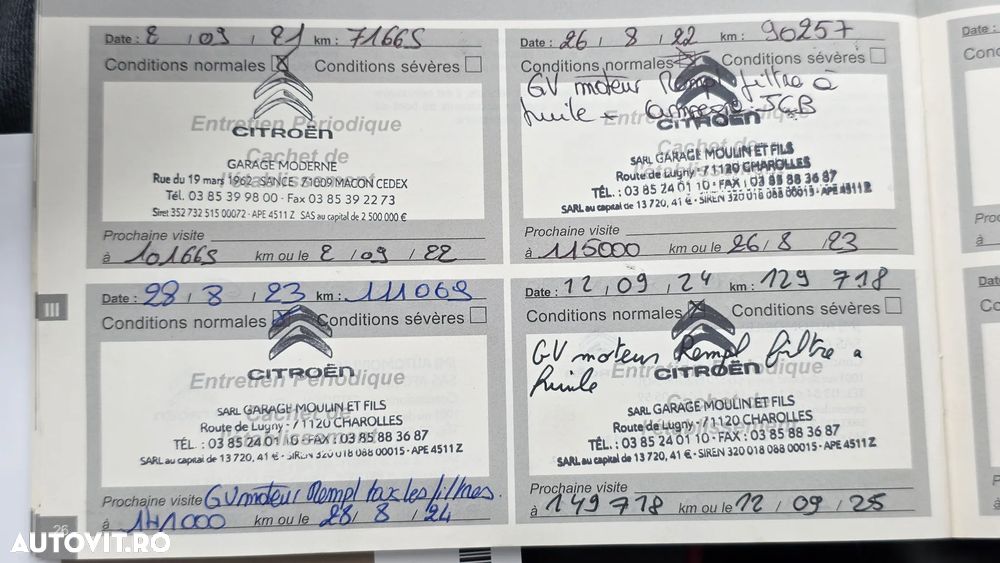 Date : 2 / 09 / 21 km : 71665
Conditions normales ☒ Conditions sévères ☐
Entretien Périodique
CITROËN
Cachet de
l'établissement
GARAGE MODERNE
Rue du 19 mars 1962 SANCE 71009 MACON CEDEX
Tél. 03 85 39 98 00 - Fax 03 85 39 22 73
Siret 352 732 515 00072 - APE 4511 Z SAS au capital de 2 500 000 €
Prochaine visite
à 101665 km ou le 2 / 09 / 22
Date : 26 / 8 / 22 km : 90257
Conditions normales ☒ Conditions sévères ☐
GV moteur Rempl filtre à
huile
CITROËN
SARL GARAGE MOULIN ET FILS
Route de Lugny - 71120 CHAROLLES
TÉL. : 03 85 24 01 10 - FAX : 03 85 88 36 87
SARL au capital de 13 720, 41 € - SIREN 320 018 088 00015 - APE 4511 Z
Prochaine visite
à 115000 km ou le 26 / 8 / 23
III
Date : 28 / 8 / 23 km : 111069
Conditions normales ☒ Conditions sévères ☐
CITROËN
Entretien Périodique
Cachet de
l'établissement
SARL GARAGE MOULIN ET FILS
Route de Lugny - 71120 CHAROLLES
TÉL. : 03 85 24 01 10 - FAX : 03 85 88 36 87
SARL au capital de 13 720, 41 € - SIREN 320 018 088 00015 - APE 4511 Z
Prochaine visite GV moteur Rempl tax les filtres.
à 141000 km ou le 28 / 8 / 24
Date : 12 / 09 / 24 km : 129 718
Conditions normales ☒ Conditions sévères ☐
GV moteur Rempl filtre a
huile
CITROËN
Entretien Périodique
Cachet de
l'établissement
SARL GARAGE MOULIN ET FILS
Route de Lugny - 71120 CHAROLLES
TÉL. : 03 85 24 01 10 - FAX : 03 85 88 36 87
SARL au capital de 13 720, 41 € - SIREN 320 018 088 00015 - APE 4511 Z
Prochaine visite
à 149718 km ou le 12 / 09 / 25
26
AUTOVIT.RO